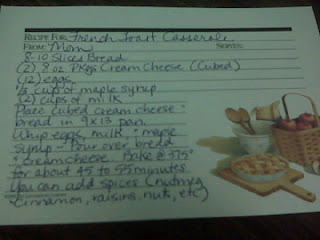 RECIPE FOR: French Toast Casserole
FROM: Mom SERVES:
8-10 Slices Bread
(2) 8 oz Pkgs Cream Cheese (Cubed)
(12) eggs
⅓ cup of maple syrup
(2) cups of milk
Place cubed cream cheese &
bread in 9x13 pan.
Whip eggs, milk, & maple
syrup - Pour over bread
& creamcheese. Bake @ 375°
for about 45 to 55 minutes
You can add spices (nutmeg
cinnamon, raisins, nuts, etc)